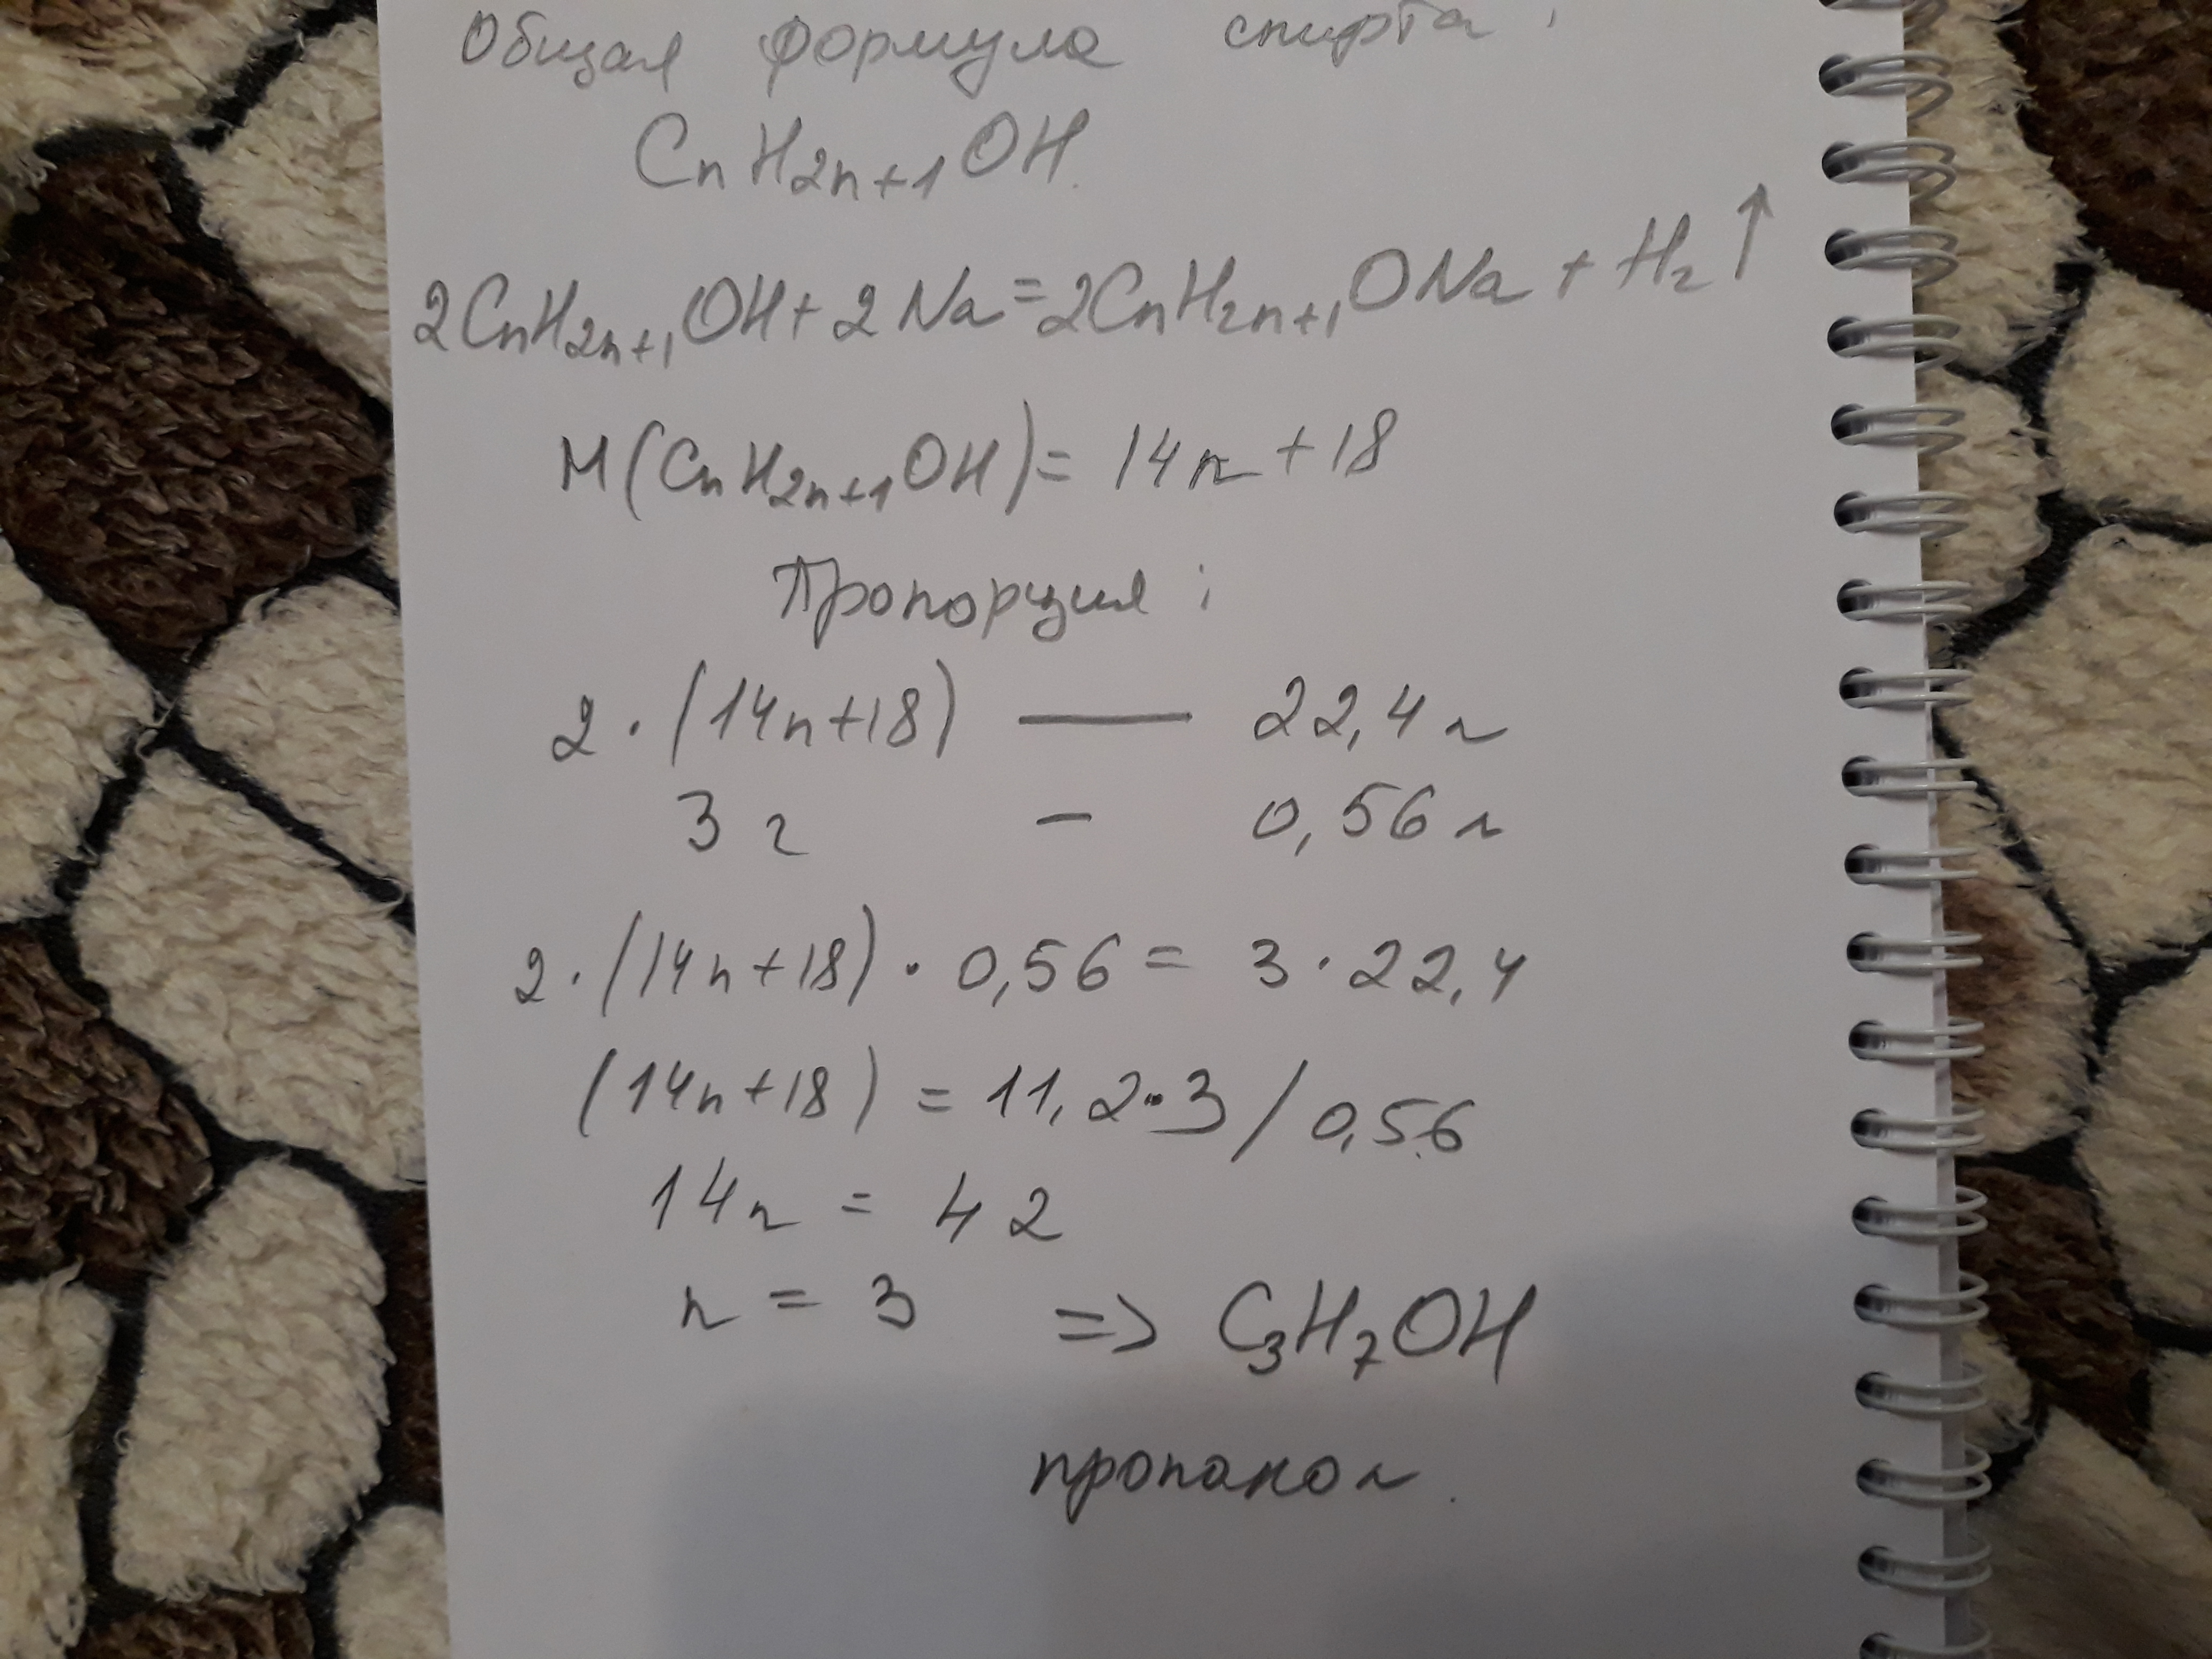 Общая формула спирта:
CnH2n+1OH.
2CnH2n+1OH+2Na=2CnH2n+1ONa+H2↑
M(CnH2n+1OH)=14n+18
Пропорция:
2·(14n+18) — 22,4л
3г - 0,56л
2·(14n+18)·0,56=3·22,4
(14n+18)=11,2·3/0,56
14n=42
n=3 => C3H7OH
пропанол.